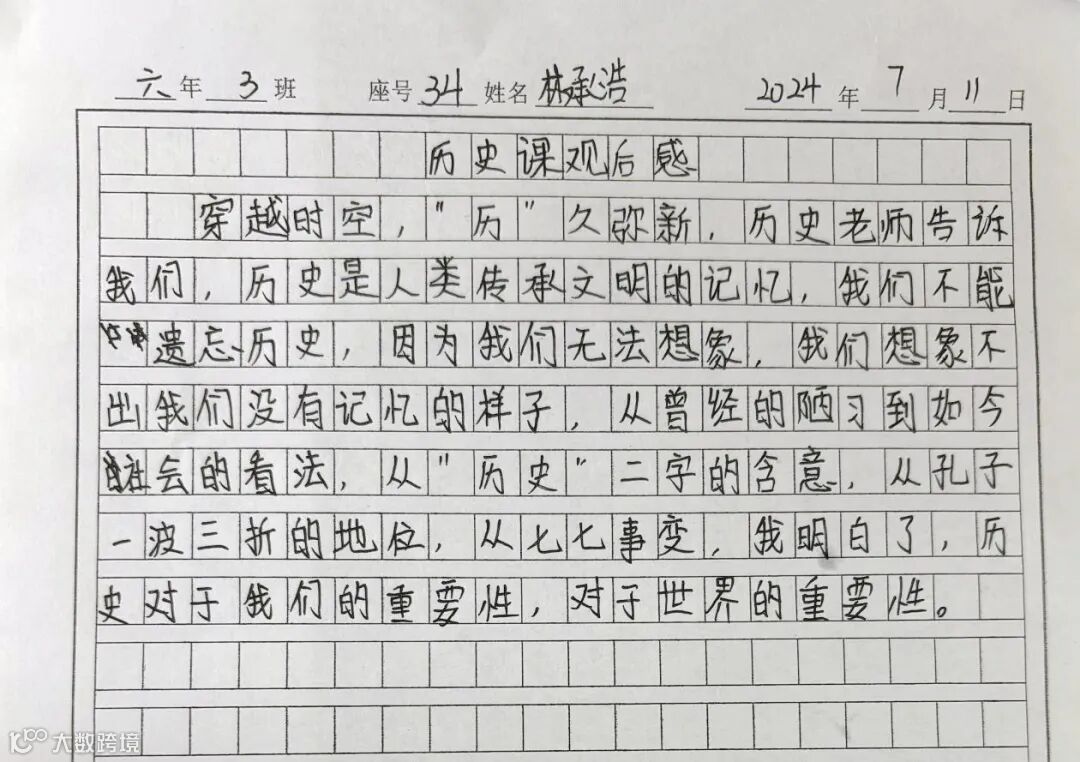 六年3班 座号34 姓名林承浩 2024年7月11日
历史课观后感
穿越时空，"历"久弥新，历史老师告诉
我们，历史是人类传承文明的记忆，我们不能
遗忘历史，因为我们无法想象，我们想象不
出我们没有记忆的样子，从曾经的陋习到如今
社会的看法，从"历史"二字的含意，从孔子
一波三折的地位，从七七事变，我明白了，历
史对于我们的重要性，对于世界的重要性。
大数跨境